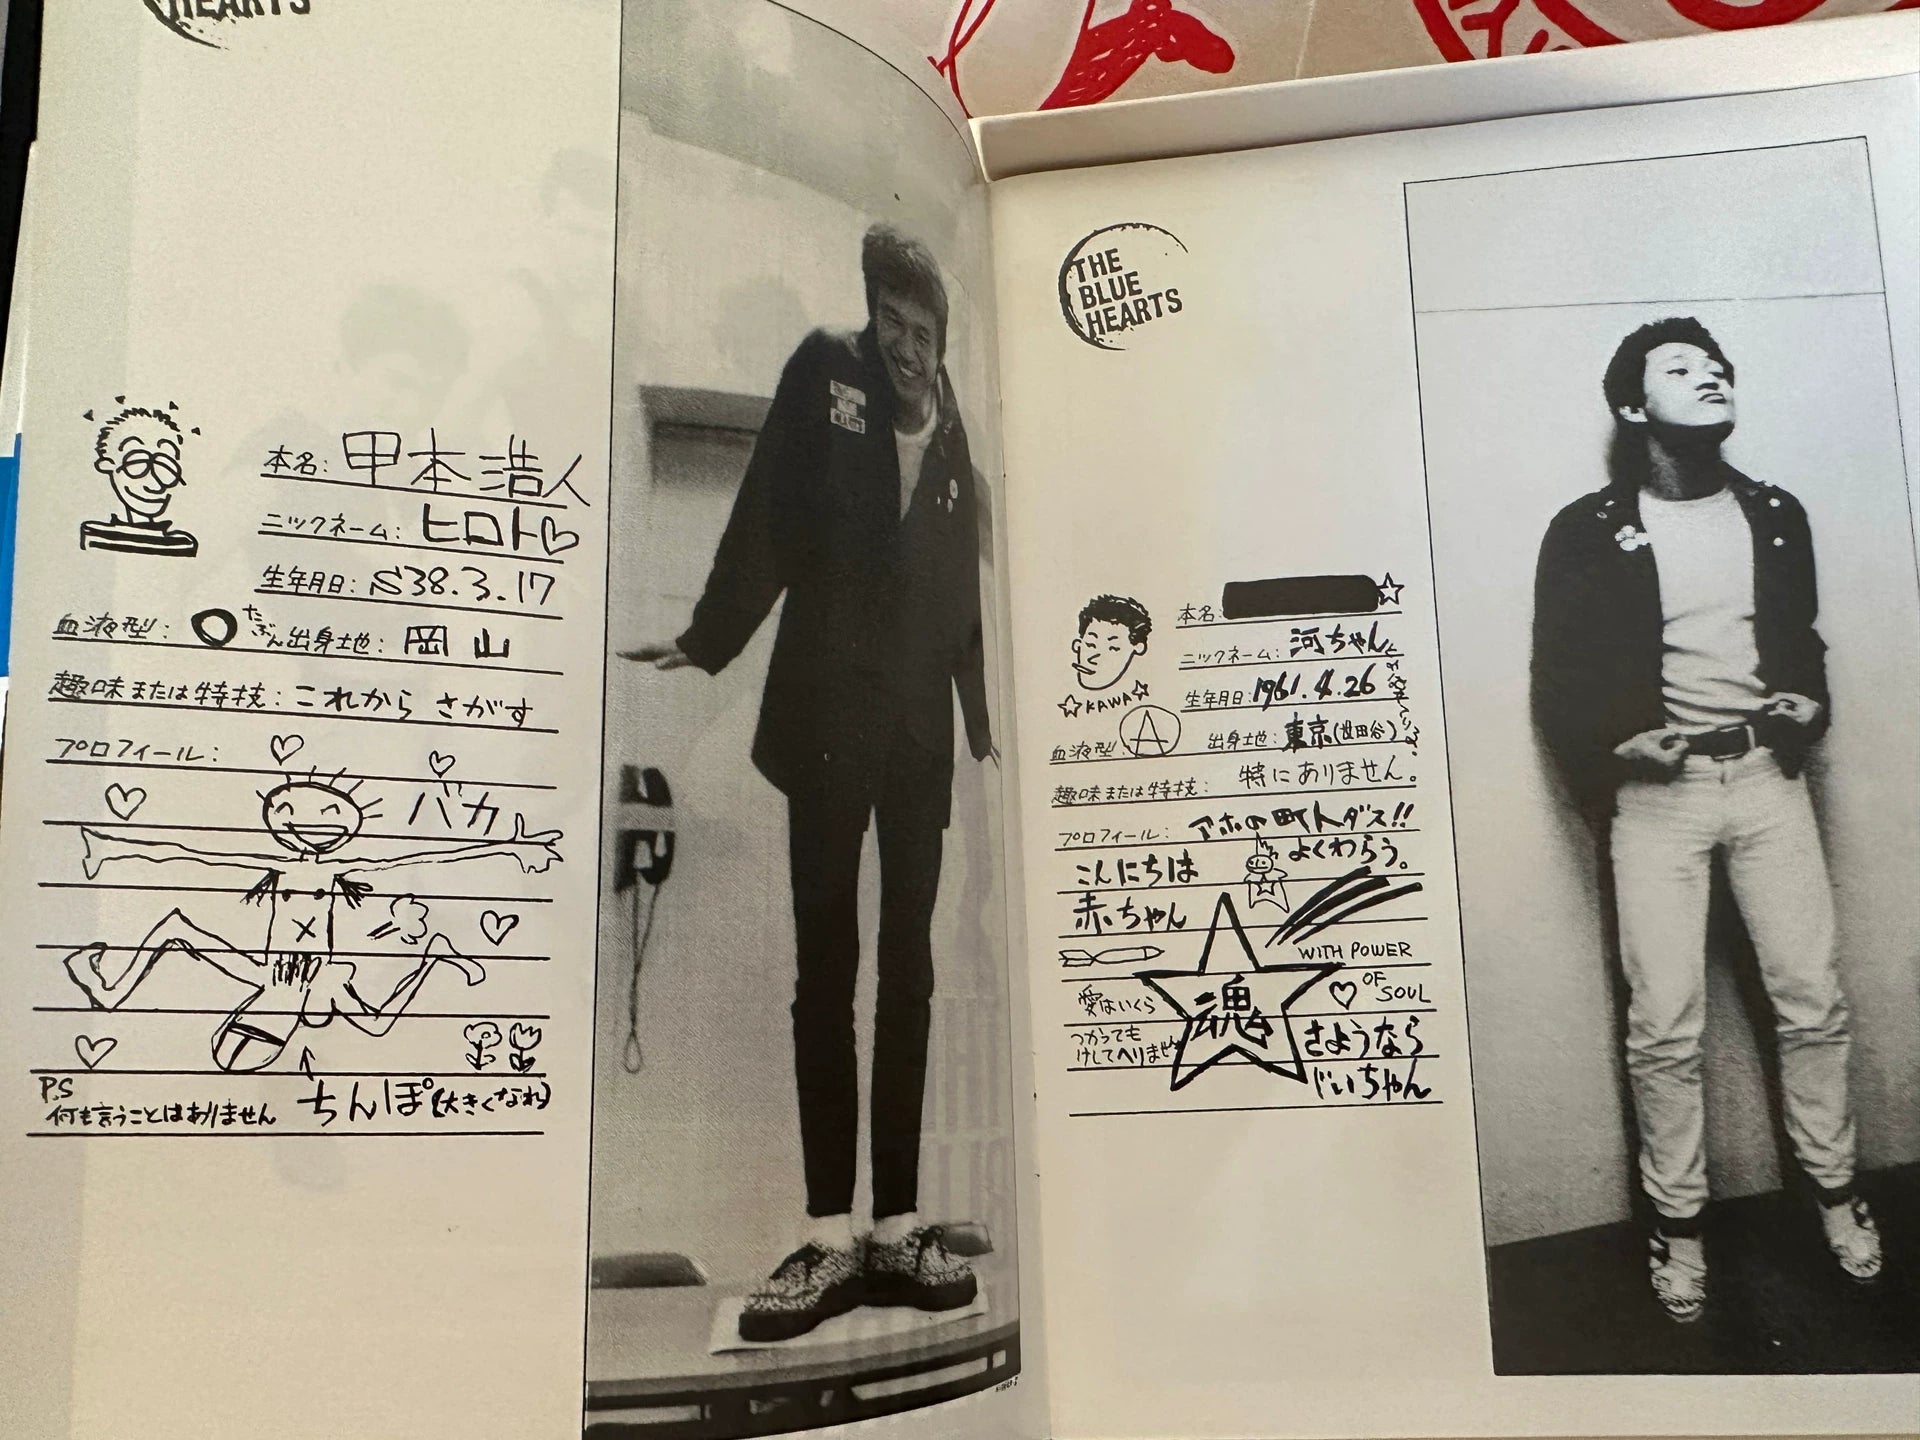 HEARTS
本名: 甲本浩人
ニックネーム: ヒロト♡
生年月日: S38.3.17
血液型: O たぶん 出身地: 岡山
趣味または特技: これから さがす
プロフィール:
バカ
P.S
何も言うことはありません
ちんぽ(大きくなれ)
THE
BLUE
HEARTS
本名: ☆
ニックネーム: 河ちゃん
☆KAWA☆
生年月日: 1961.4.26
血液型: A 出身地: 東京(世田谷)
趣味または特技: 特にありません。
プロフィール: アホの町人ダス!!
よくわらう。
こんにちは
赤ちゃん
WITH POWER
OF
SOUL
魂
愛はいくら
つかっても
けしてへりません
さようなら
じいちゃん